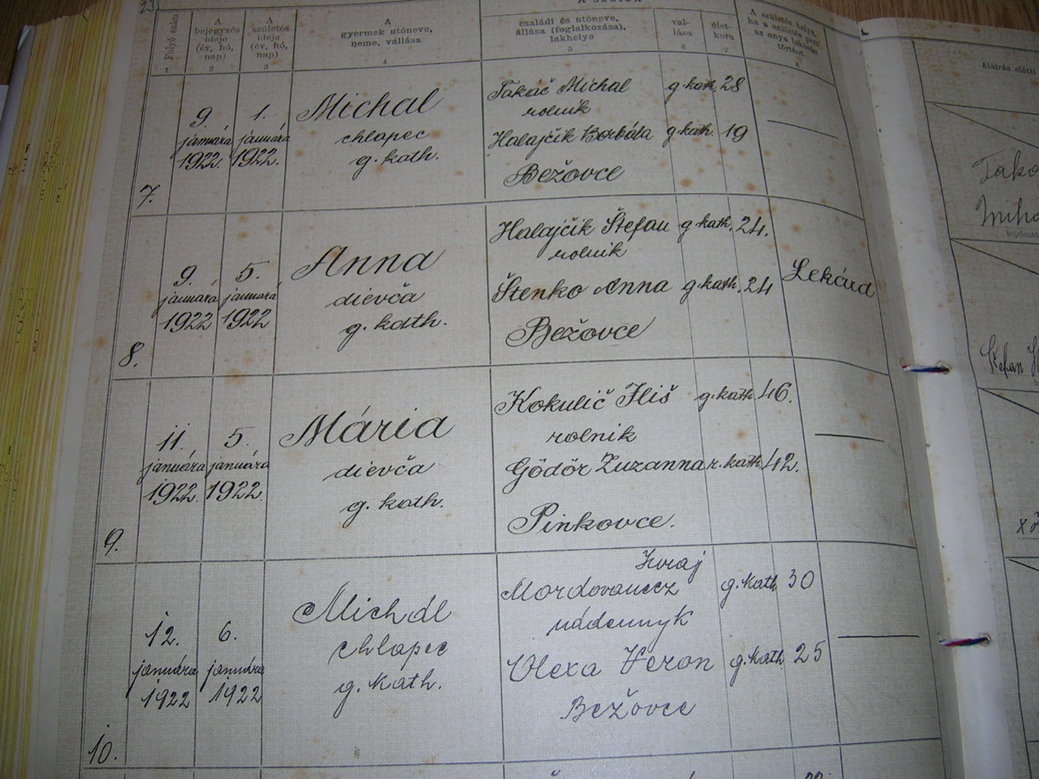 23
A szülők
Folyó szám
A bejegyzés ideje (év, hó, nap)
A születés ideje (év, hó, nap)
A gyermek utóneve, neme, vallása
családi és utóneve, állása (foglalkozása), lakhelye
vallása
életkora
A születés helye, ha a születés nem az anya lakásán történt
Aláírás előtti
1 2 3 4 5 6 7 8
7.
9. januára 1922.
1. januára 1922.
Michal
chlapec
g. kath.
Takáč Michal g. kath. 28
rolnik
Halajčik Borbála g. kath. 19
Bežovce
8.
9. januára 1922
5. januára 1922
Anna
dievča
g. kath.
Halajčik Štefan g. kath. 24.
rolnik
Štenko Anna g. kath. 24
Bežovce
Lekárd
9.
11. januára 1922.
5. januára 1922.
Mária
dievča
g. kath.
Kokulič Iliš g. kath. 46.
rolnik
Gödör Zuzanna r. kath. 42.
Pinkovce.
10.
12. januára 1922
6. januára 1922
Michál
chlapec
g. kath.
Juraj
Mordovanecz g. kath 30
nádennyk
Olexa Veron g. kath 25
Bežovce
Štefan